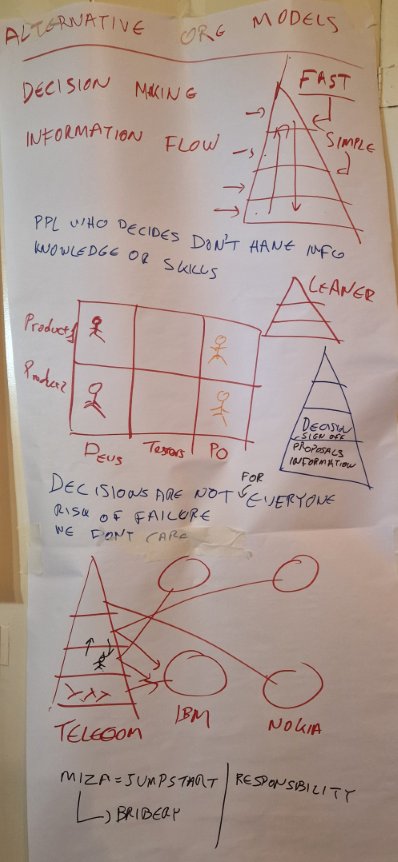 ALTERNATIVE ORG MODELS
DECISION MAKING
FAST
INFORMATION FLOW
SIMPLE
PPL WHO DECIDES DON'T HANE INFO
KNOWLEDGE OR SKILLS
LEANER
Product1
Product2
DEVS TESTERS PO
DECISION
SIGN OFF
PROPOSALS
INFORMATION
DECISIONS ARE NOT FOR EVERYONE
RISK OF FAILURE
WE FONT CARE
TELECOM IBM NOKIA
MIZA = JUMPSTART RESPONSIBILITY
BRIBERY